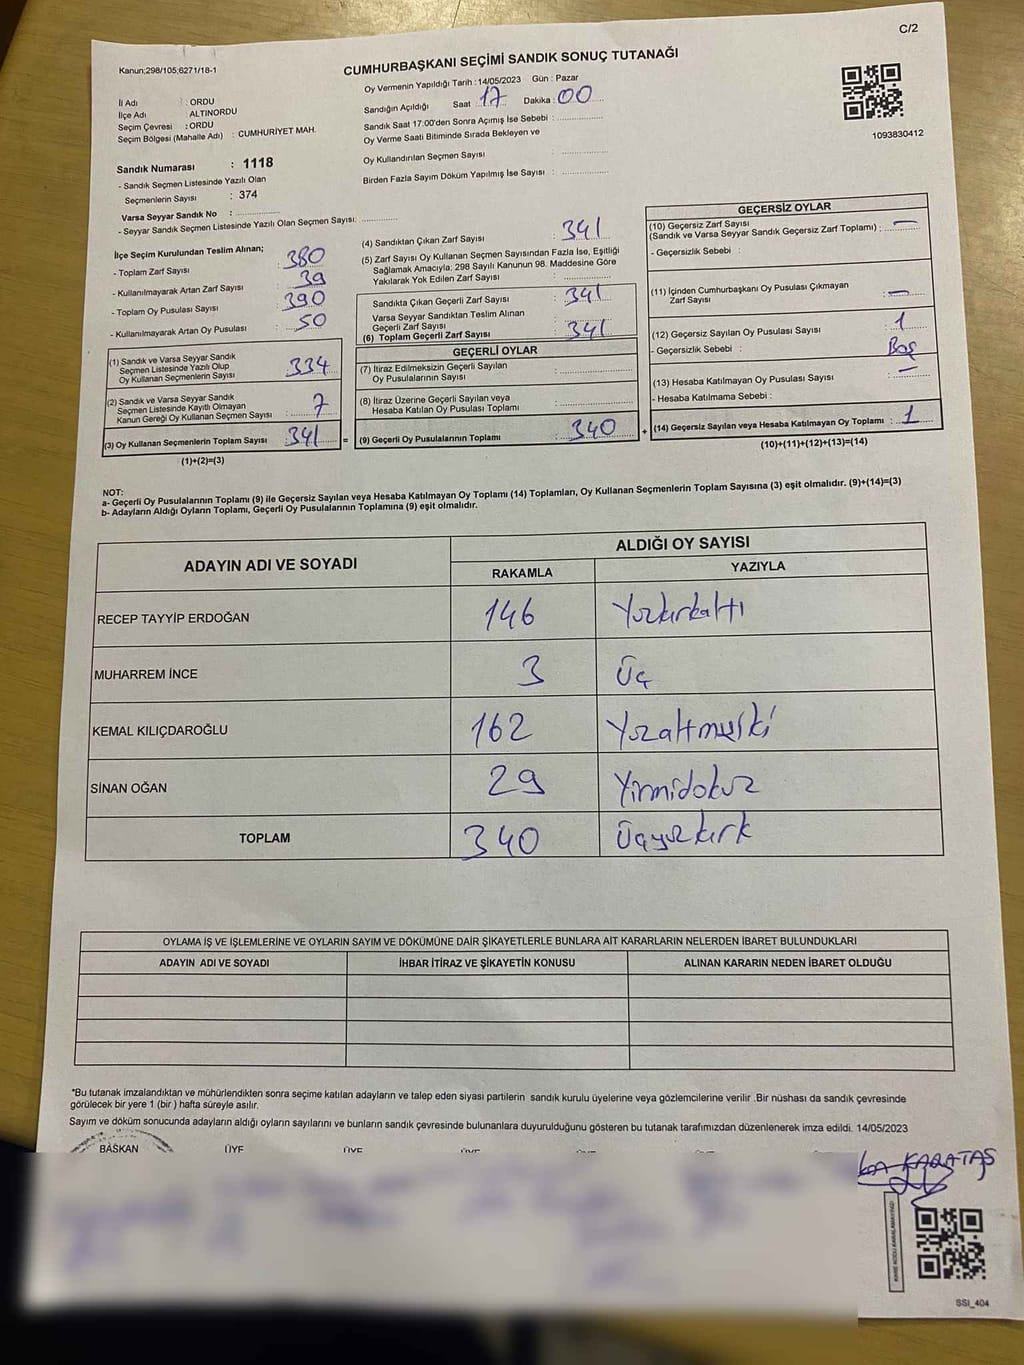 C/2
Kanun;298/105;6271/18-1
CUMHURBAŞKANI SEÇİMİ SANDIK SONUÇ TUTANAĞI
İl Adı : ORDU
İlçe Adı : ALTINORDU
Seçim Çevresi : ORDU
Seçim Bölgesi (Mahalle Adı) : CUMHURİYET MAH.
Oy Vermenin Yapıldığı Tarih : 14/05/2023 Gün : Pazar
Sandığın Açıldığı Saat 17 Dakika : 00
Sandık Saat 17:00'den Sonra Açımış İse Sebebi :
Oy Verme Saati Bitiminde Sırada Bekleyen ve
Oy Kullandırılan Seçmen Sayısı :
Birden Fazla Sayım Döküm Yapılmış İse Sayısı :
1093830412
Sandık Numarası : 1118
- Sandık Seçmen Listesinde Yazılı Olan
Seçmenlerin Sayısı : 374
Varsa Seyyar Sandık No :
- Seyyar Sandık Seçmen Listesinde Yazılı Olan Seçmen Sayısı:
İlçe Seçim Kurulundan Teslim Alınan;
- Toplam Zarf Sayısı : 380
- Kullanılmayarak Artan Zarf Sayısı : 39
- Toplam Oy Pusulası Sayısı : 390
- Kullanılmayarak Artan Oy Pusulası : 50
(1) Sandık ve Varsa Seyyar Sandık
Seçmen Listesinde Yazılı Olup
Oy Kullanan Seçmenlerin Sayısı : 334
(2) Sandık ve Varsa Seyyar Sandık
Seçmen Listesinde Kayıtlı Olmayan
Kanun Gereği Oy Kullanan Seçmen Sayısı : 7
(3) Oy Kullanan Seçmenlerin Toplam Sayısı : 341 =
(1)+(2)=(3)
(4) Sandıktan Çıkan Zarf Sayısı : 341
(5) Zarf Sayısı Oy Kullanan Seçmen Sayısından Fazla İse, Eşitliği
Sağlamak Amacıyla; 298 Sayılı Kanunun 98. Maddesine Göre
Yakılarak Yok Edilen Zarf Sayısı :
Sandıkta Çıkan Geçerli Zarf Sayısı : 341
Varsa Seyyar Sandıktan Teslim Alınan
Geçerli Zarf Sayısı :
(6) Toplam Geçerli Zarf Sayısı : 341
GEÇERLİ OYLAR
(7) İtiraz Edilmeksizin Geçerli Sayılan
Oy Pusulalarının Sayısı :
(8) İtiraz Üzerine Geçerli Sayılan veya
Hesaba Katılan Oy Pusulası Toplamı :
(9) Geçerli Oy Pusulalarının Toplamı : 340 +
GEÇERSİZ OYLAR
(10) Geçersiz Zarf Sayısı
(Sandık ve Varsa Seyyar Sandık Geçersiz Zarf Toplamı) : —
- Geçersizlik Sebebi :
(11) İçinden Cumhurbaşkanı Oy Pusulası Çıkmayan
Zarf Sayısı : —
(12) Geçersiz Sayılan Oy Pusulası Sayısı : 1
- Geçersizlik Sebebi : Boş
(13) Hesaba Katılmayan Oy Pusulası Sayısı : —
- Hesaba Katılmama Sebebi :
(14) Geçersiz Sayılan veya Hesaba Katılmayan Oy Toplamı : 1
(10)+(11)+(12)+(13)=(14)
NOT:
a- Geçerli Oy Pusulalarının Toplamı (9) ile Geçersiz Sayılan veya Hesaba Katılmayan Oy Toplamı (14) Toplamları, Oy Kullanan Seçmenlerin Toplam Sayısına (3) eşit olmalıdır. (9)+(14)=(3)
b- Adayların Aldığı Oyların Toplamı, Geçerli Oy Pusulalarının Toplamına (9) eşit olmalıdır.
ADAYIN ADI VE SOYADI ALDIĞI OY SAYISI
RAKAMLA YAZIYLA
RECEP TAYYİP ERDOĞAN 146 Yüzkırkaltı
MUHARREM İNCE 3 Üç
KEMAL KILIÇDAROĞLU 162 Yüzaltmışiki
SİNAN OĞAN 29 Yirmidokuz
TOPLAM 340 Üçyüzkırk
OYLAMA İŞ VE İŞLEMLERİNE VE OYLARIN SAYIM VE DÖKÜMÜNE DAİR ŞİKAYETLERLE BUNLARA AİT KARARLARIN NELERDEN İBARET BULUNDUKLARI
ADAYIN ADI VE SOYADI İHBAR İTİRAZ VE ŞİKAYETİN KONUSU ALINAN KARARIN NEDEN İBARET OLDUĞU
*Bu tutanak imzalandıktan ve mühürlendikten sonra seçime katılan adayların ve talep eden siyasi partilerin sandık kurulu üyelerine veya gözlemcilerine verilir .Bir nüshası da sandık çevresinde
görülecek bir yere 1 (bir ) hafta süreyle asılır.
Sayım ve döküm sonucunda adayların aldığı oyların sayılarını ve bunların sandık çevresinde bulunanlara duyurulduğunu gösteren bu tutanak tarafımızdan düzenlenerek imza edildi. 14/05/2023
BAŞKAN ÜYE ÜYE
KARATAŞ
SSI_404